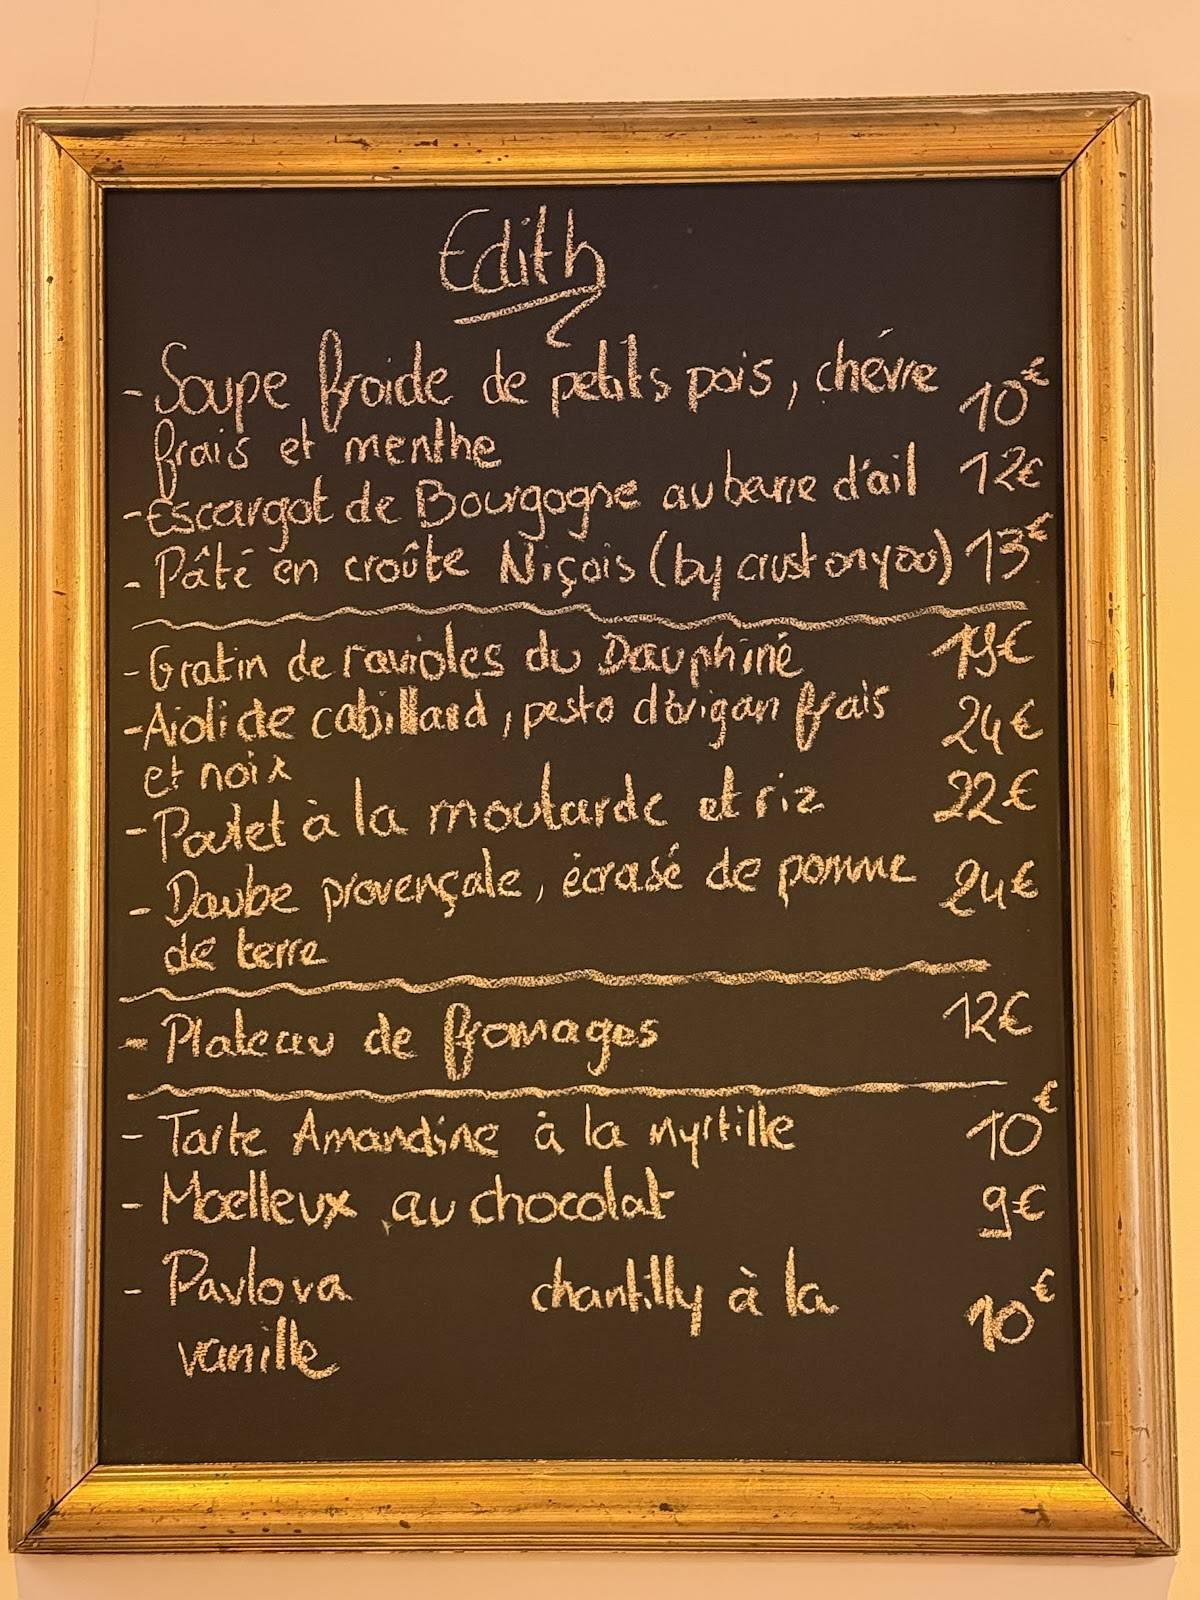 Edith
- Soupe froide de petits pois, chévre 10€
frais et menthe
- Escargot de Bourgogne au beurre d'ail 12€
- Pâté en croûte Niçois (by crust on you) 13€
- Gratin de ravioles du Dauphiné 19€
- Aioli de cabillaud, pesto d'origan frais 24€
et noix
- Poulet à la moutarde et riz 22€
- Daube provençale, écrasé de pomme 24€
de terre
- Plateau de fromages 12€
- Tarte Amandine à la myrtille 10€
- Moelleux au chocolat 9€
- Pavlova chantilly à la 10€
vanille